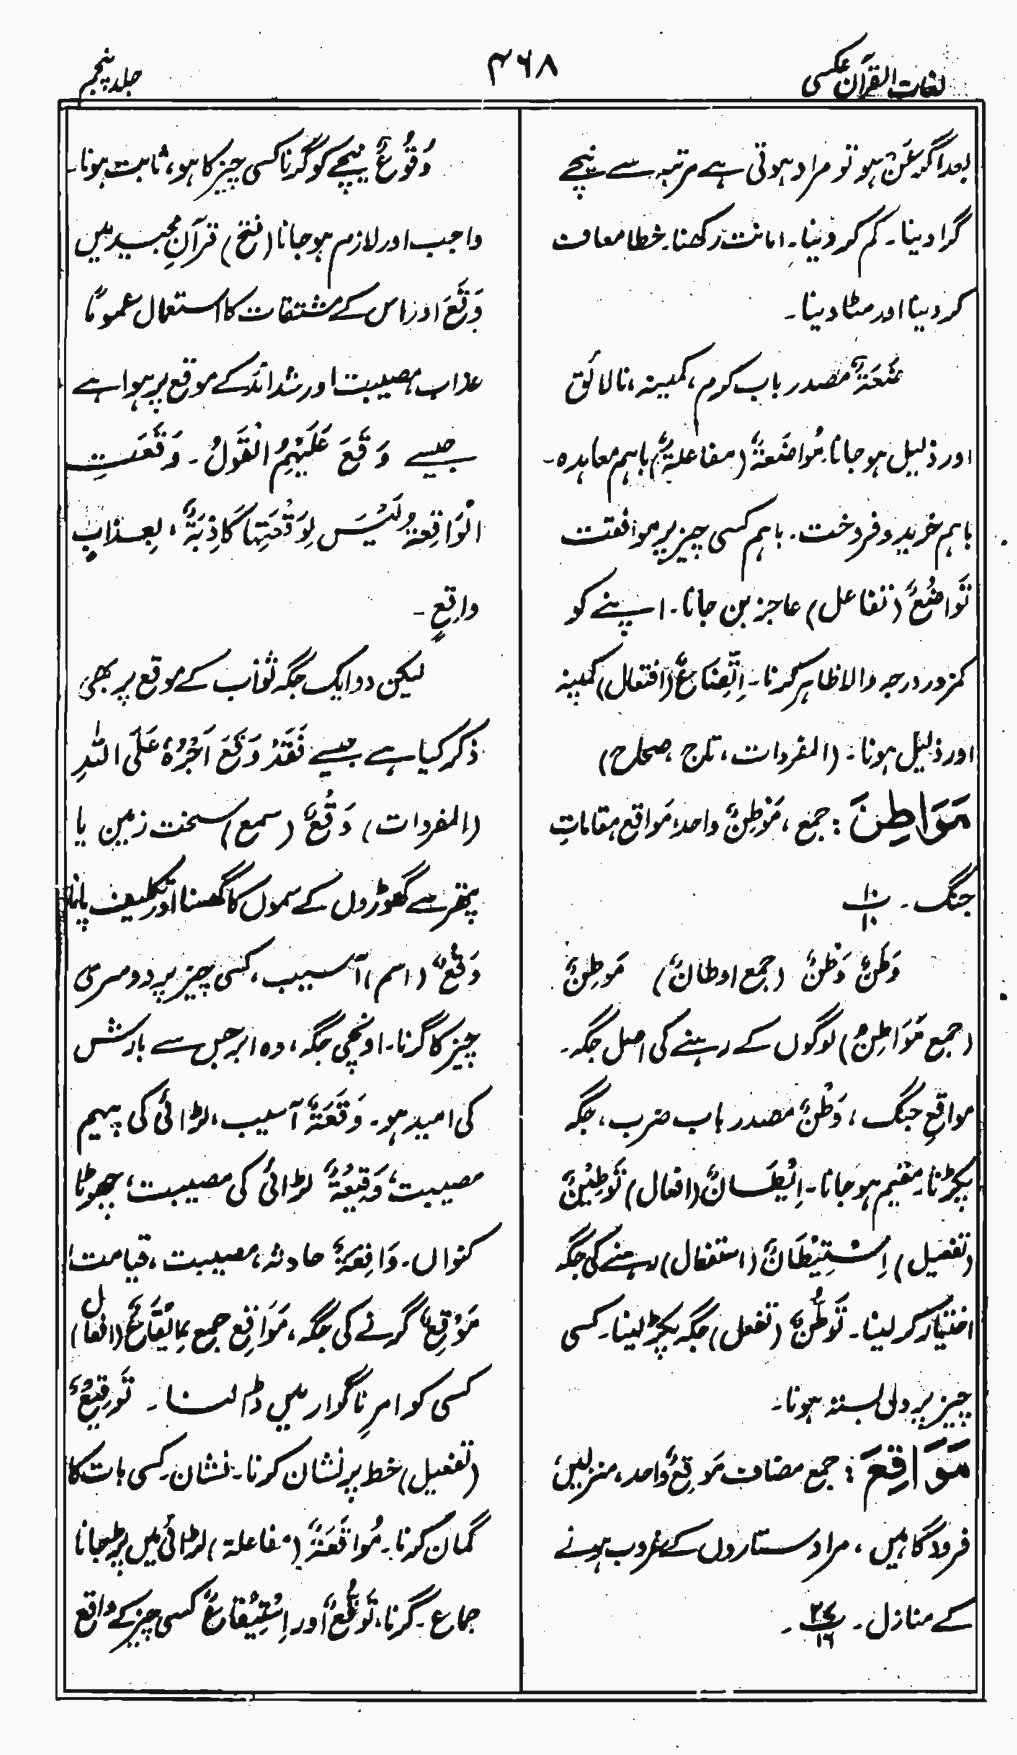 لغات القرآن عکسی
۴۶۸
جلد پنجم
بعد اگر عَنْ ہو تو مراد ہوتی ہے مرتبہ سے نیچے
گرا دینا۔ کم کر دینا۔ امانت رکھنا۔ خطا معاف
کر دینا اور مٹا دینا۔
ضَعَۃٌ مصدر باب کرم، کمینہ، نالائق
اور ذلیل ہو جانا۔ مُوَاضَعَۃٌ (مفاعلۃ) باہم معاہدہ۔
باہم خرید و فروخت۔ باہم کسی چیز پر موافقت
تَوَاضُعٌ (تفاعل) عاجز بن جانا۔ اپنے کو
کمزور درجہ والا ظاہر کرنا۔ اِتِّضَاعٌ (افتعال) کمینہ
اور ذلیل ہونا۔ (المفردات، تاج، صحاح)
مَوَاطِنَ: جمع، مَوْطِنٌ واحد، مَواقع مقاماتِ
جنگ۔ پ۱۰/۱۰
وَطَنٌ وَطْنٌ (جمع اوطانٌ) مَوطِنٌ
(جمع مَوَاطِن) لوگوں کے رہنے کی اصل جگہ۔
مواقعِ جنگ، وَطْنٌ مصدر باب ضرب، جگہ
پکڑنا۔ مقیم ہو جانا۔ اِیْطَانٌ (افعال) تَوطِیْنٌ
(تفعیل) اِسْتِیْطَانٌ (استفعال) رہنے کی جگہ
اختیار کر لینا۔ تَوَطُّنٌ (تفعل) جگہ پکڑ لینا۔ کسی
چیز پر دل بستہ ہونا۔
مَوَاقِعَ: جمع مضاف مَوقِعٌ واحد، منزلیں
فرودگاہیں، مراد ستاروں کے غروب ہونے
کے منازل۔ پ۲۷/۱۶۔
وُقُوْعٌ نیچے کو گرنا کسی چیز کا ہو، ثابت ہونا۔
واجب اور لازم ہو جانا (فتح) قرآنِ مجید میں
وَقَعَ اور اس کے مشتقات کا استعمال عمومًا
عذاب، مصیبت اور شدائد کے موقع پر ہوا ہے
جیسے وَقَعَ عَلَیْہِمُ الْقَوْلُ۔ وَقَعَتِ
الْوَاقِعَۃُ لَیْسَ لِوَقْعَتِہَا کَاذِبَۃٌ، بِعذابٍ
واقِعٍ۔
لیکن دو ایک جگہ ثواب کے موقع پر بھی
ذکر کیا ہے جیسے فَقَدْ وَقَعَ اَجْرُہٗ عَلَی اللّٰہِ
(المفردات) وَقْعٌ (سمع) سخت زمین یا
پتھر سے گھوڑوں کے سموں کا گھسنا اور تکلیف پانا
وَقْعٌ (اسم) آسیب، کسی چیز پر دوسری
چیز کا گرنا۔ اونچی جگہ، وہ ابر جس سے بارش
کی امید ہو۔ وَقْعَۃٌ آسیب، لڑائی کی پیہم
مصیبت، وَقِیْعَۃٌ لڑائی کی مصیبت، چھوٹا
کنواں۔ وَاقِعَۃٌ حادثہ، مصیبت، قیامت،
مَوْقِعٌ گرنے کی جگہ، مَوَاقِع جمع۔ اِیْقَاعٌ (افعال)
کسی کو امرِ ناگوار میں ڈالنا۔ تَوقِیْعٌ
(تفعیل) خط پر نشان کرنا۔ نشان۔ کسی بات کا
گمان کرنا۔ مُوَاقَعَۃٌ (مفاعلۃ) لڑائی میں پڑ جانا
جماع۔ گرنا، تَوَقُّعٌ اور اِسْتِیْقَاعٌ کسی چیز کے واقع